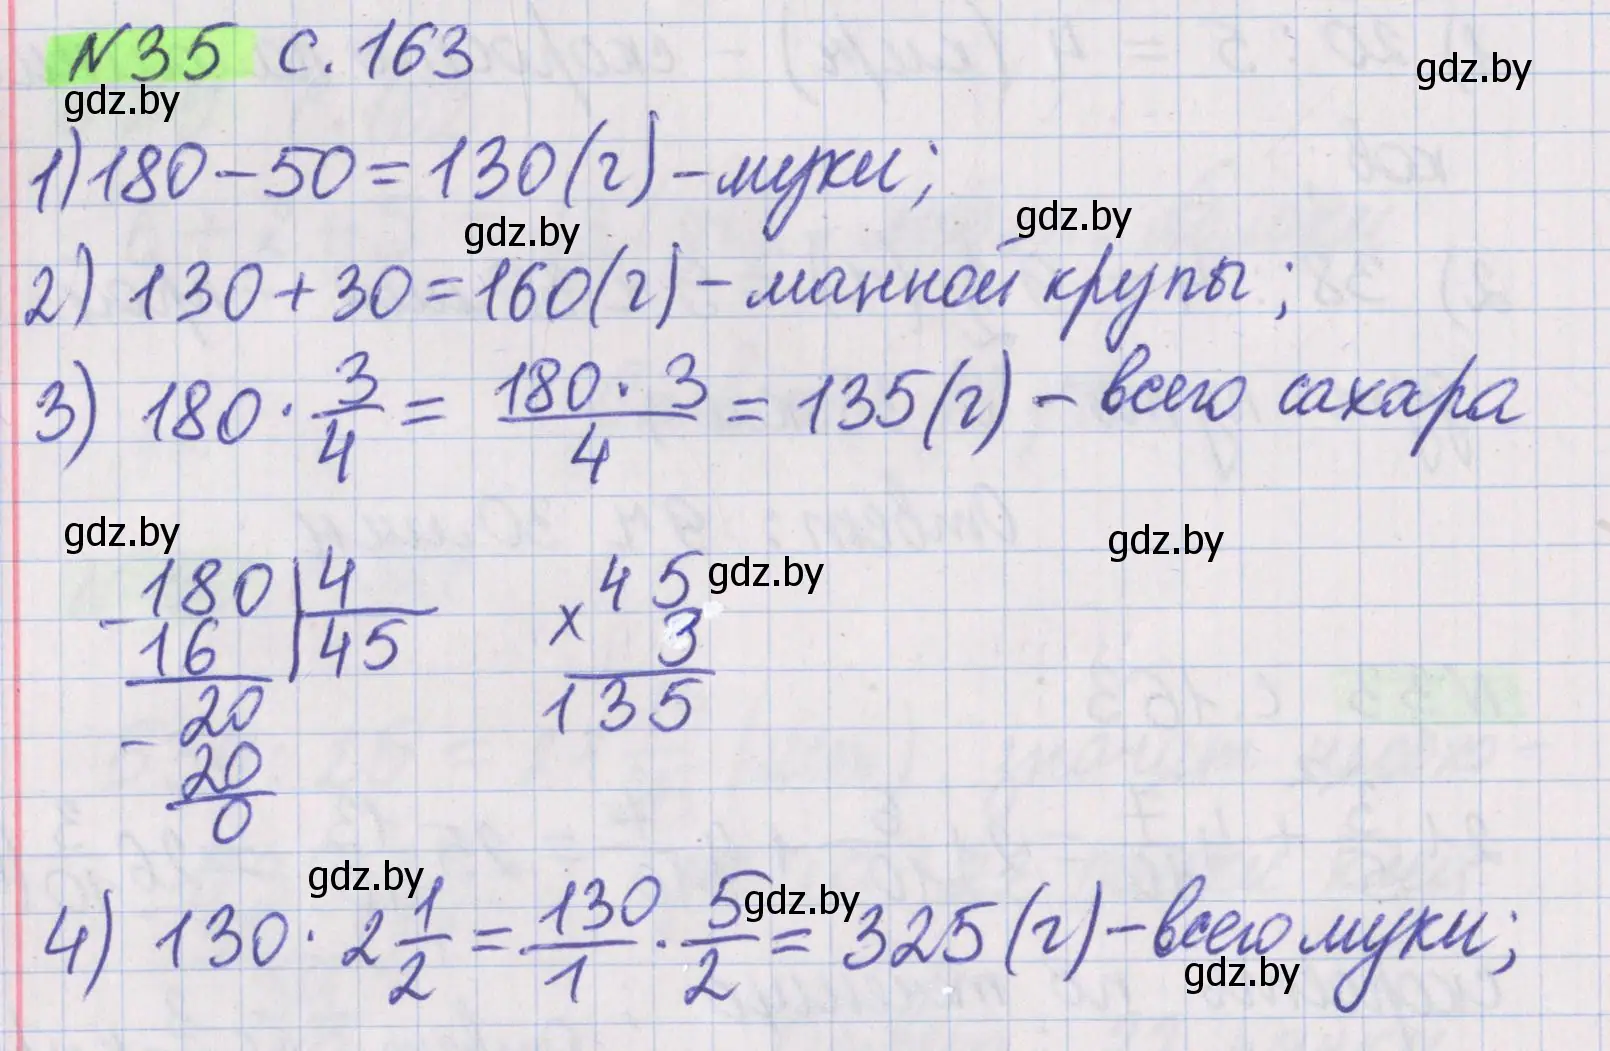 №35 с. 163
gdz.by
gdz.by
1) 180 − 50 = 130 (г) − муки;
gdz.by
gdz.by
2) 130 + 30 = 160 (г) − манной крупы;
3) 180 · 3/4 = 180 · 3/4 = 135 (г) − всего сахара
gdz.by
gdz.by
gdz.by
−180 | 4
16 | 45
−20
20
0
× 45
3
135
gdz.by
gdz.by
4) 130 · 2 1/2 = 130/1 · 5/2 = 325 (г) − всего муки;
gdz.by